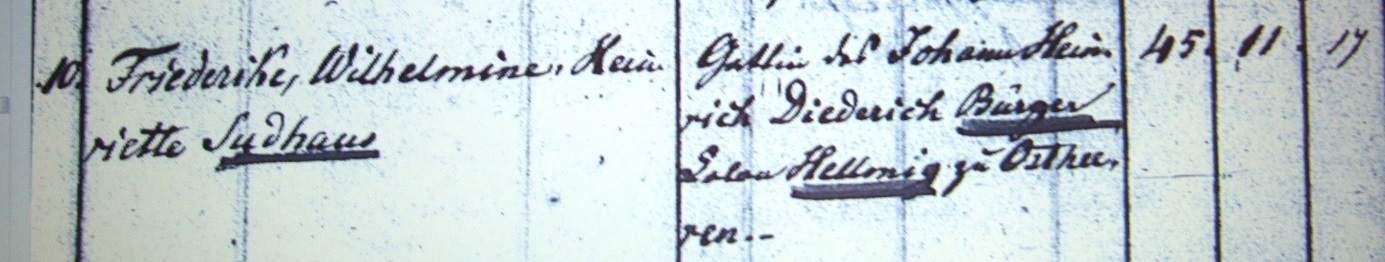 10. Friederike, Wilhelmine, Hein
riette Sudhaus
Gattin des Johann Hein
rich Diederich Bürger
Colon Hellmig zu Osthee
ren. --
45. 11. 17